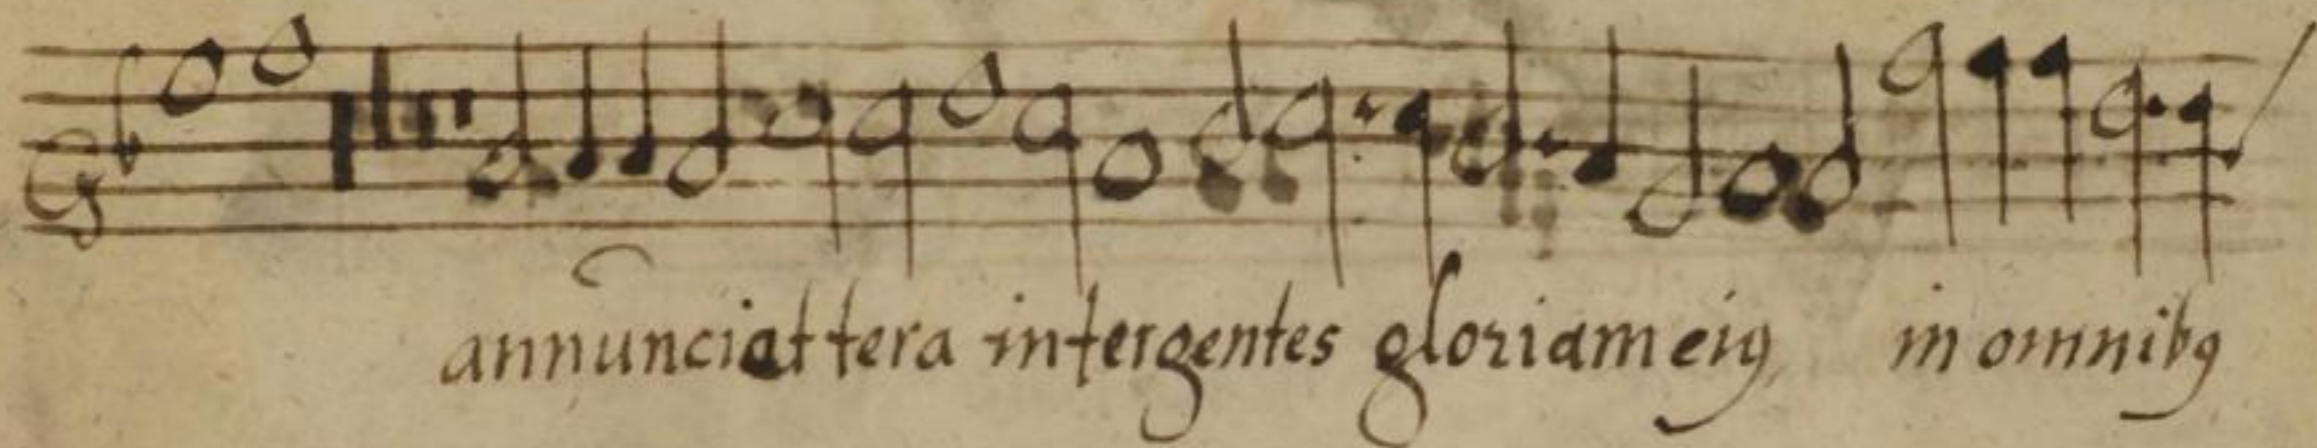 annũnciat tera inter gentes gloriam eiꝰ in omnibꝰ